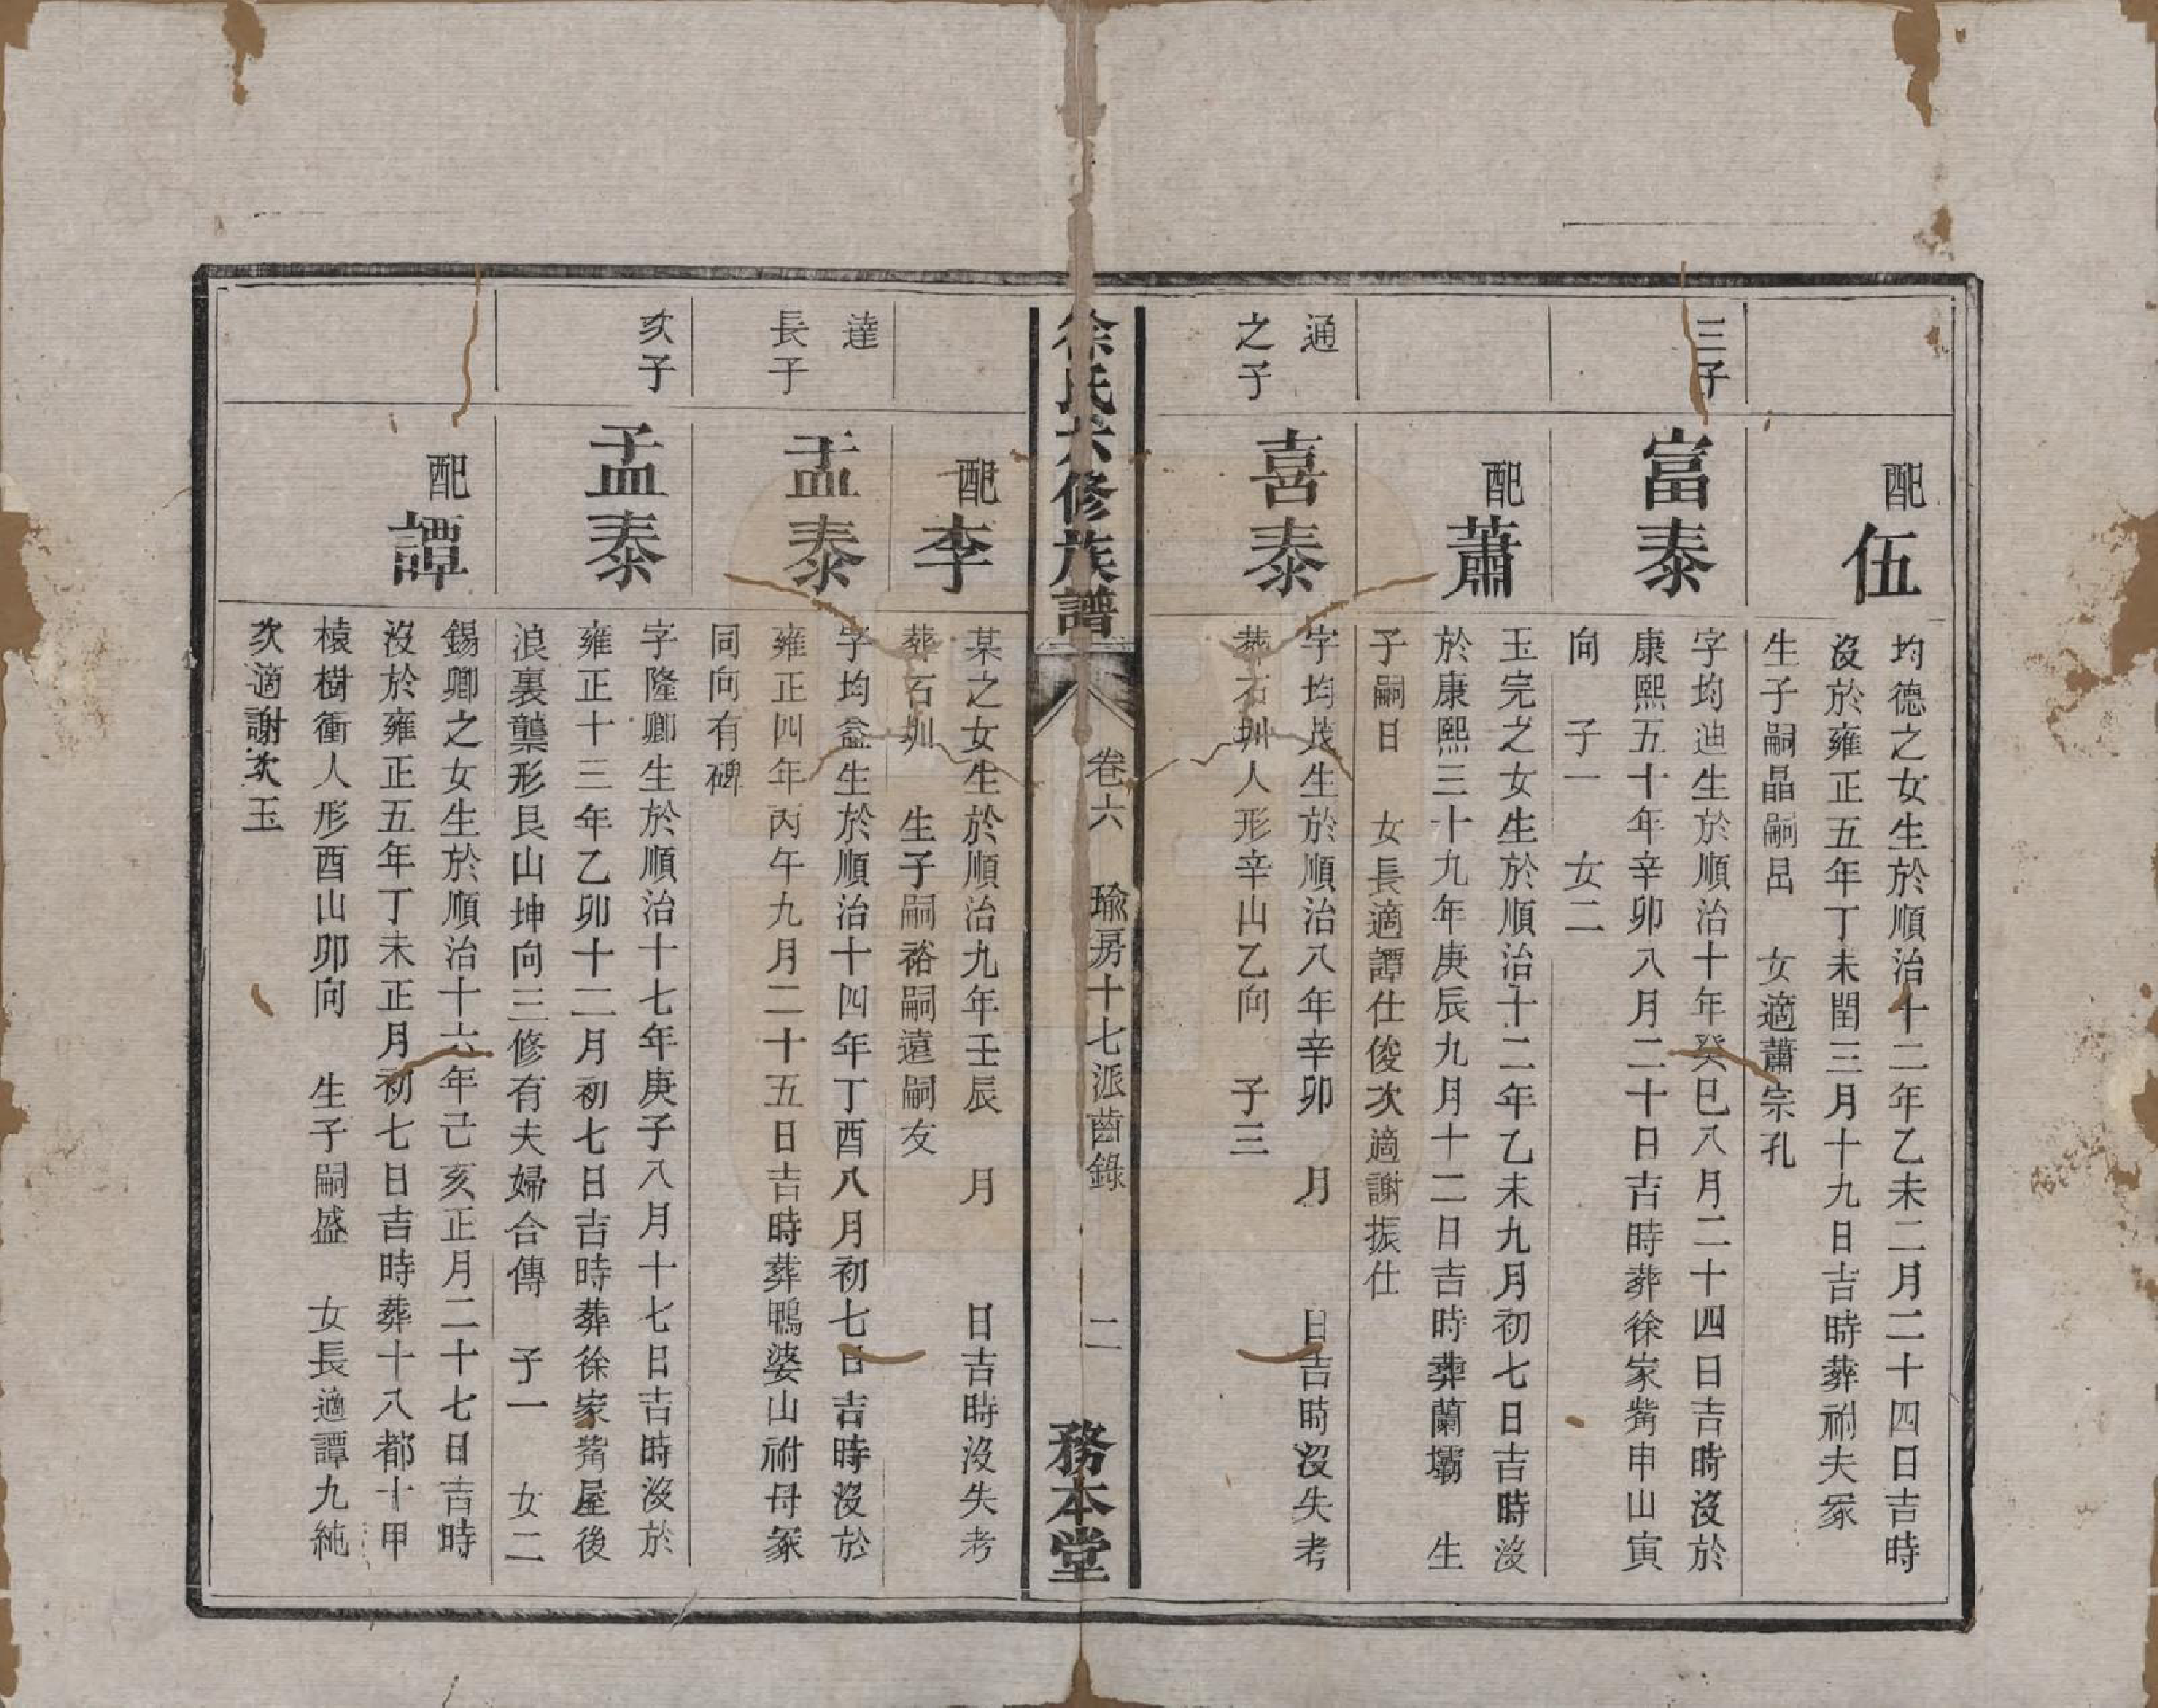 配伍
均德之女生於順治十二年乙未二月二十四日吉時
沒於雍正五年丁未閏三月十九日吉時葬祔夫冢
生子嗣晶嗣昆 女適蕭宗孔
三子
富泰
字均迪生於順治十年癸巳八月二十四日吉時沒於
康熙五十年辛卯八月二十日吉時葬徐家嘴申山寅
向 子一 女二
配蕭
玉完之女生於順治十二年乙未九月初七日吉時沒
於康熙三十九年庚辰九月十二日吉時葬蘭壩 生
子嗣日 女長適譚仕俊次適謝振仕
通
之子
喜泰
字均茂生於順治八年辛卯 月 日吉時沒失考
葬石圳人形辛山乙向 子三
徐氏六修族譜 卷六 瑜房十七派齒錄 二 務本堂
配李
某之女生於順治九年壬辰 月 日吉時沒失考
葬石圳 生子嗣裕嗣遠嗣友
達
長子
孟泰
字均益生於順治十四年丁酉八月初七日吉時沒於
雍正四年丙午九月二十五日吉時葬鴨婆山祔母冢
同向有碑
次子
孟泰
字隆卿生於順治十七年庚子八月十七日吉時沒於
雍正十三年乙卯十二月初七日吉時葬徐家嘴屋後
浪裏龔形艮山坤向三修有夫婦合傳 子一 女二
配譚
錫卿之女生於順治十六年己亥正月二十七日吉時
沒於雍正五年丁未正月初七日吉時葬十八都十甲
樹衝人形酉山卯向 生子嗣盛 女長適譚九純
次適謝次玉